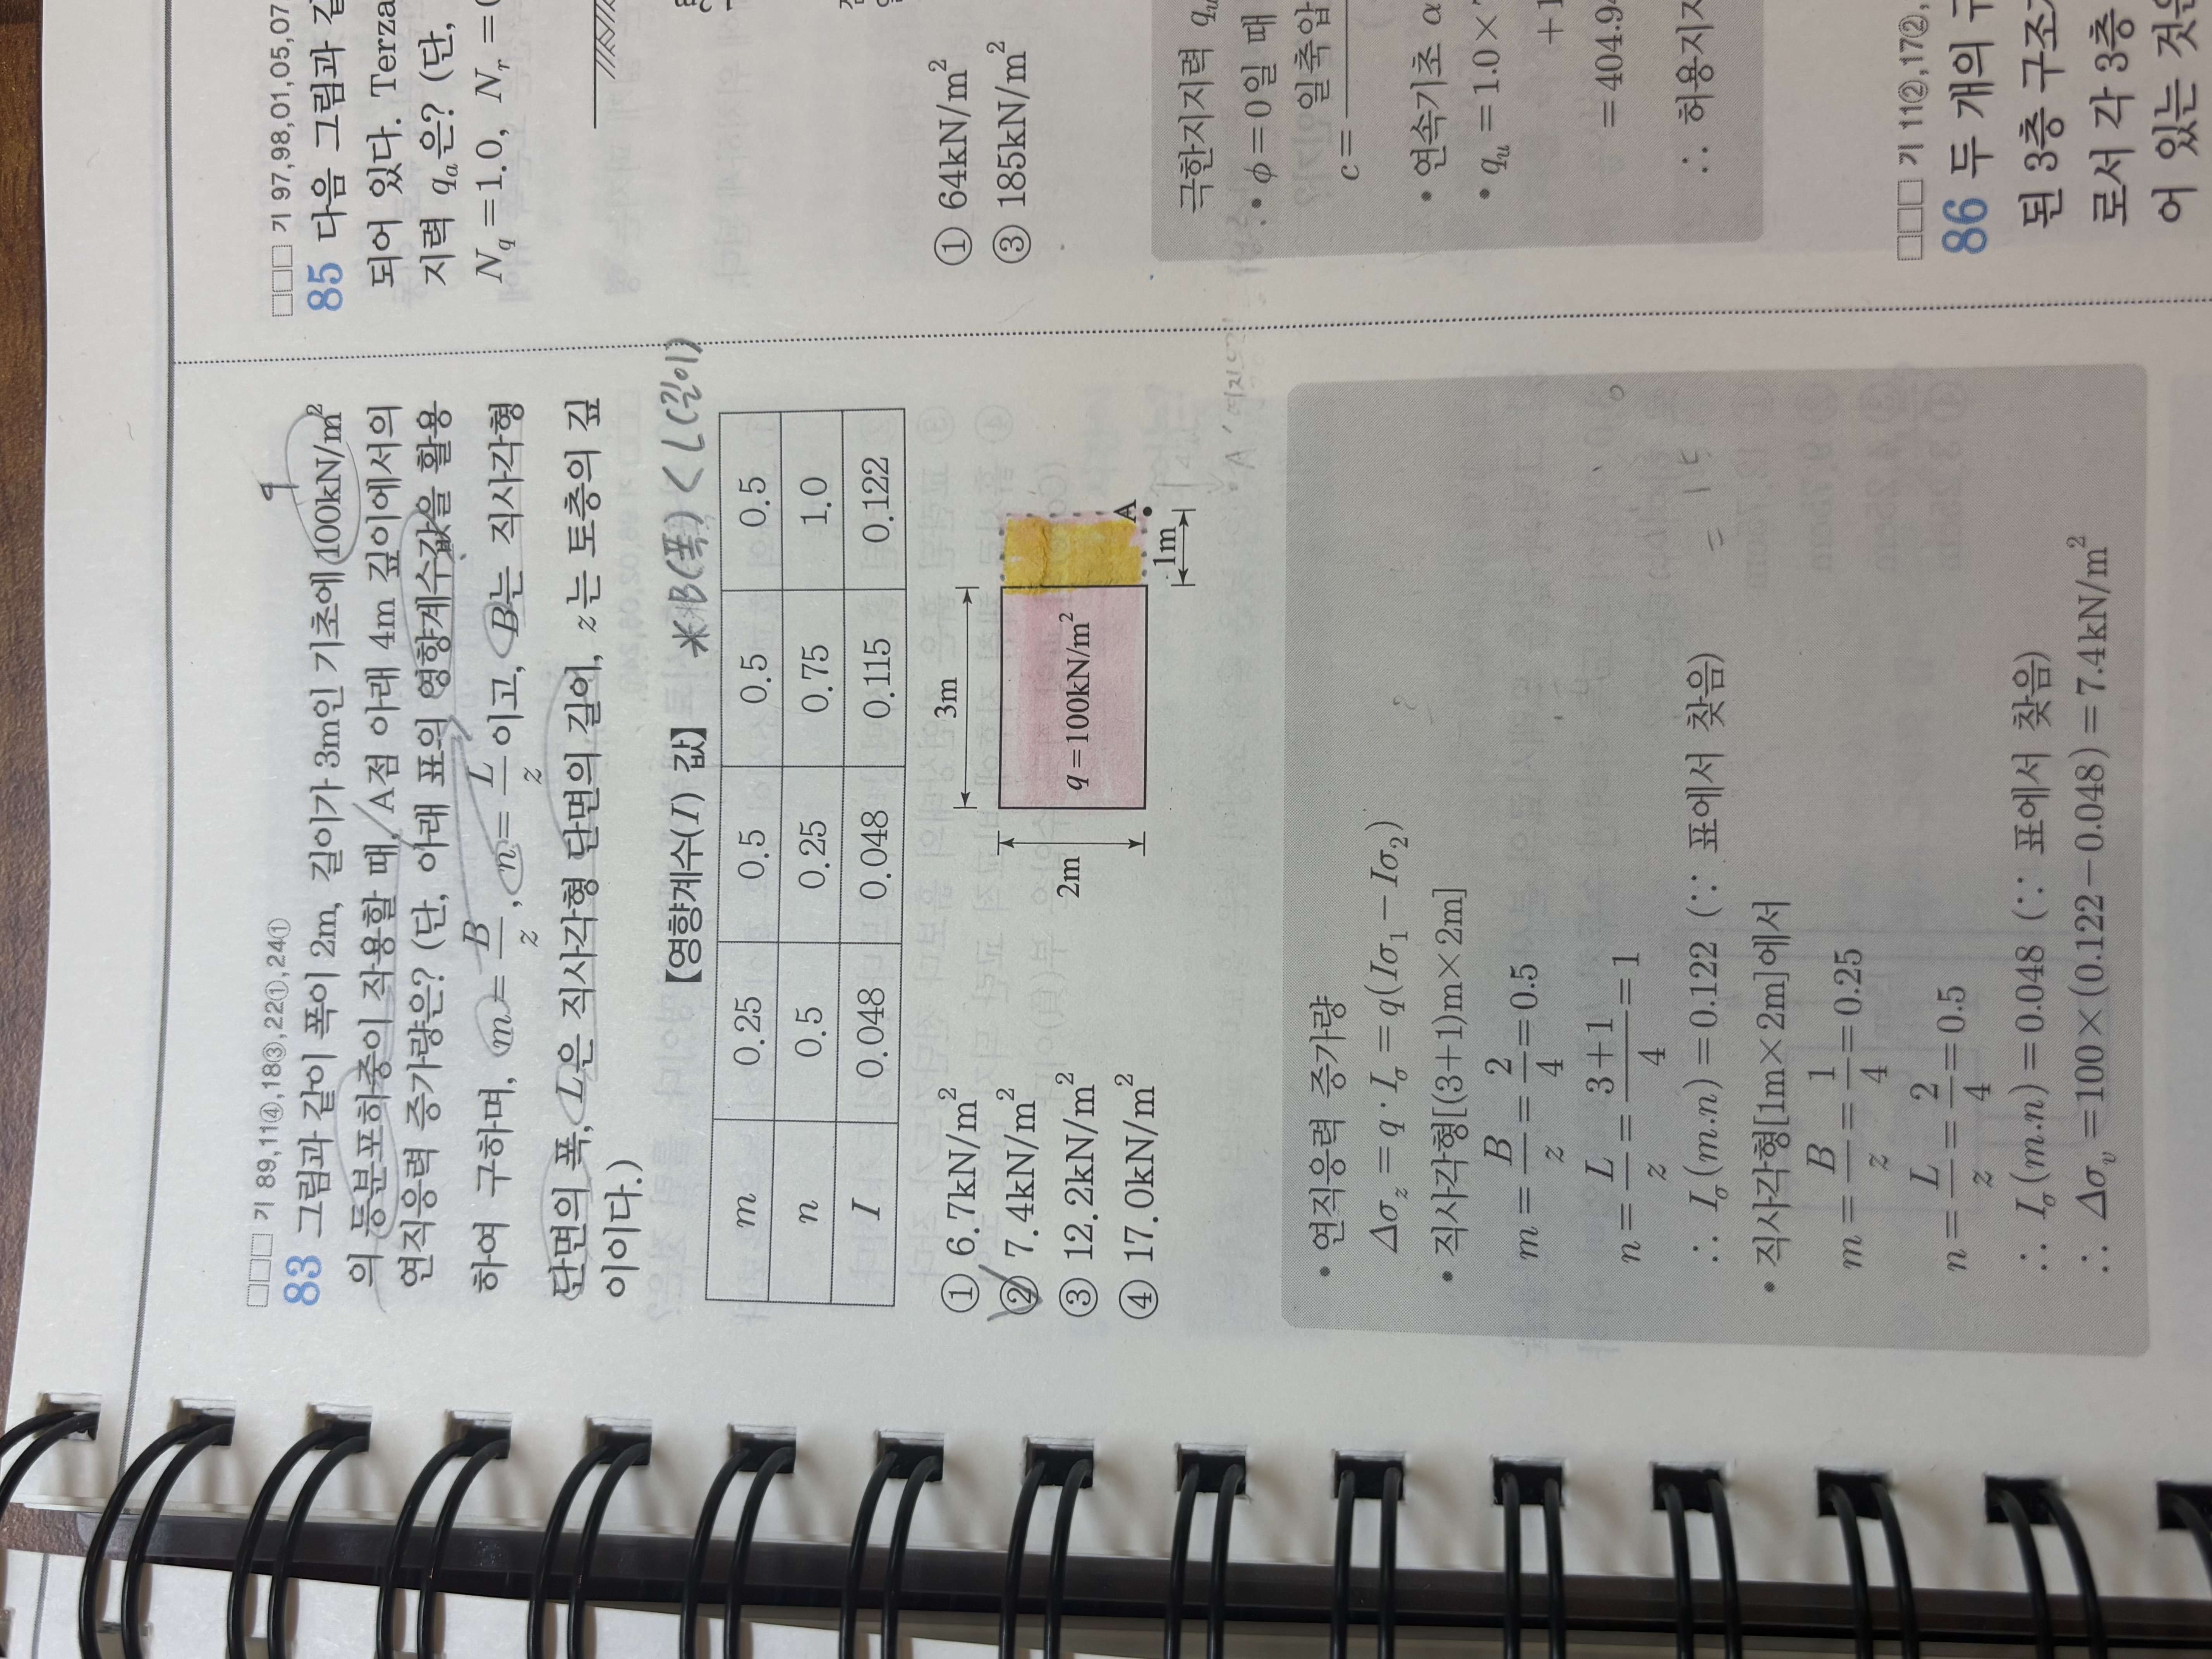 □□□ 기 89,11④,18③,22①,24①
83 그림과 같이 폭이 2m, 길이가 3m인 기초에 100kN/m²
q
의 등분포하중이 작용할 때, A점 아래 4m 깊이에서의
연직응력 증가량은? (단, 아래 표의 영향계수값을 활용
하여 구하며, m = B/z, n = L/z 이고, B는 직사각형
단면의 폭, L은 직사각형 단면의 길이, z는 토층의 깊
이이다.)
【영향계수(I) 값】 * B(폭) < L(길이)
m 0.25 0.5 0.5 0.5
n 0.5 0.25 0.75 1.0
I 0.048 0.048 0.115 0.122
① 6.7kN/m²
② 7.4kN/m²
③ 12.2kN/m²
④ 17.0kN/m²
3m
2m
q=100kN/m²
A
1m
• 연직응력 증가량
Δσz = q · Iσ = q(Iσ₁ − Iσ₂)
• 직사각형[(3+1)m×2m]
m = B/z = 2/4 = 0.5
n = L/z = (3+1)/4 = 1
∴ Iσ(m.n) = 0.122 (∵ 표에서 찾음)
• 직사각형[1m×2m]에서
m = B/z = 1/4 = 0.25
n = L/z = 2/4 = 0.5
∴ Iσ(m.n) = 0.048 (∵ 표에서 찾음)
∴ Δσv = 100×(0.122−0.048) = 7.4kN/m²
□□□ 기 97,98,01,05,07
85 다음 그림과
되어 있다.
지력 qa은? (단,
Nq=1.0, Nr=
① 64kN/m²
③ 185kN/m²
극한지지력
• φ=0일 때
c=
일축압
• 연속기초 α
• qu=1.0×
+1
=404.9
∴ 허용지지
□□□ 기 11②,17②,
86 두 개의
된 3층 구조
로서 각 3층
어 있는 것은